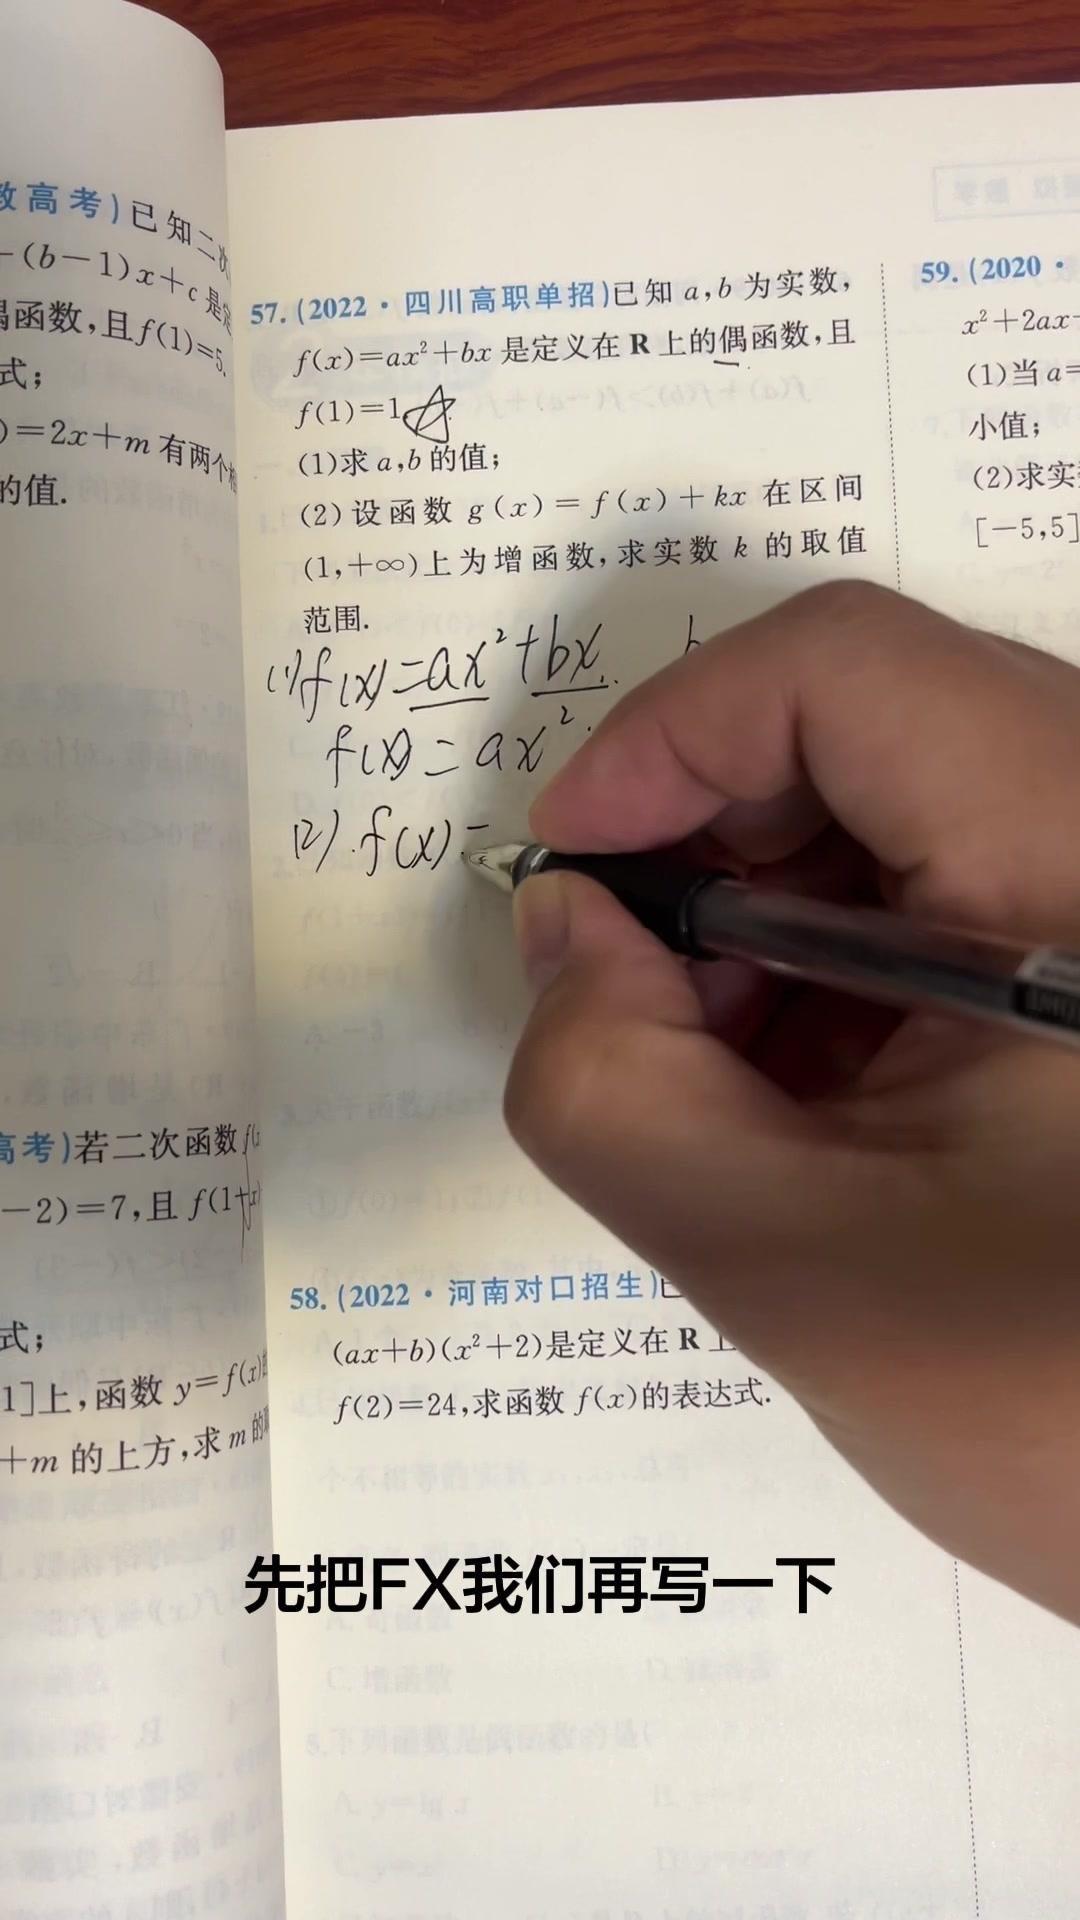 数高考)已知二次
-(b-1)x+c是定
偶函数,且f(1)=5.
式;
)=2x+m有两个相
的值.
高考)若二次函数f(x
-2)=7,且f(1+x)
式;
1]上,函数y=f(x)的
+m的上方,求m的
57.(2022·四川高职单招)已知a,b为实数,
f(x)=ax²+bx是定义在R上的偶函数,且
f(1)=1
(1)求a,b的值;
(2)设函数g(x)=f(x)+kx在区间
(1,+∞)上为增函数,求实数k的取值
范围.
(1)f(x)=ax²+bx b
f(x)=ax²
(2).f(x)=
58.(2022·河南对口招生)已
(ax+b)(x²+2)是定义在R上
f(2)=24,求函数f(x)的表达式.
59.(2020·
x²+2ax-
(1)当a=
小值;
(2)求实
[-5,5]
先把FX我们再写一下